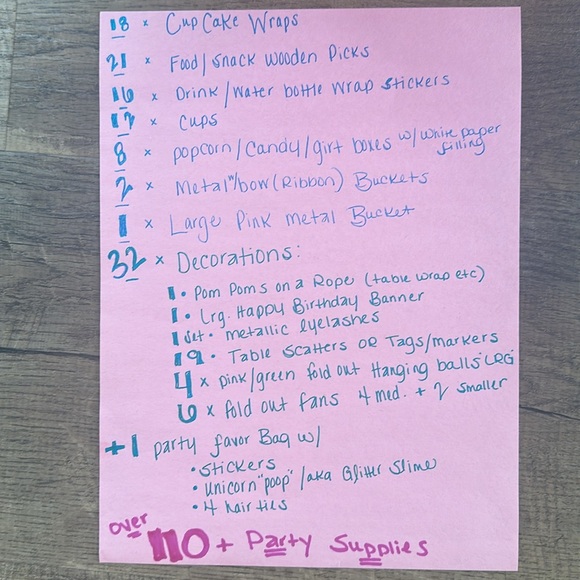 18 × Cupcake Wraps
21 × Food/snack wooden Picks
16 × Drink/Water bottle wrap stickers
17 × cups
8 × popcorn/Candy/gift boxes w/ white paper filling
2 × Metal w/bow (Ribbon) Buckets
1 × Large Pink metal Bucket
32 × Decorations:
1 • Pom Poms on a Rope (table wrap etc)
1 • Lrg. Happy Birthday Banner
1 set • metallic eyelashes
19 • Table Scatters or Tags/markers
4 × pink/green fold out Hanging balls LRG
6 × fold out fans 4 med. + 2 smaller
+1 party favor Bag w/
• Stickers
• Unicorn "poop"/aka Glitter Slime
• 4 hair ties
over 110+ Party Supplies